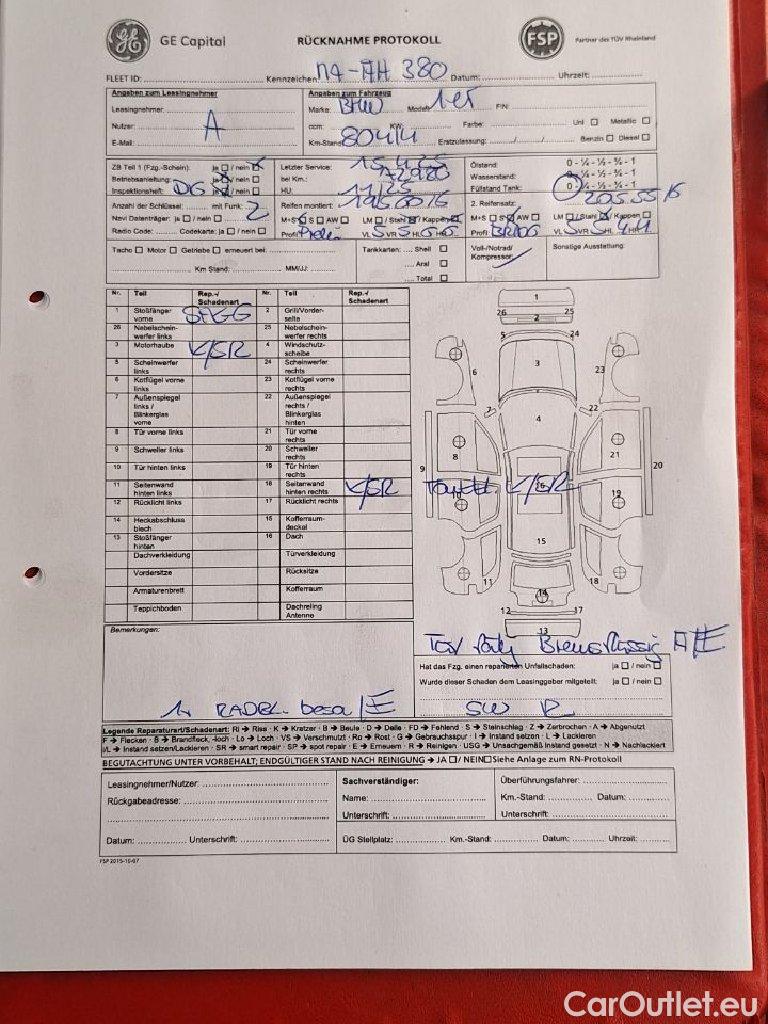 GE GE Capital RÜCKNAHME PROTOKOLL FSP Partner des TÜV Rheinland
FLEET ID: Kennzeichen: Datum: Uhrzeit:
Angaben zum Leasingnehmer Angaben zum Fahrzeug
Leasingnehmer: Marke: BMW Modell: 1er FIN:
Nutzer: A ccm: KW: Farbe: Uni □ Metallic □
E-Mail: Km-Stand: 80414 Erstzulassung: Benzin □ Diesel □
ZB Teil 1 (Fzg.-Schein): ja □ / nein □ Letzter Service: Ölstand: 0 - ¼ - ½ - ¾ - 1
Betriebsanleitung: ja □ / nein □ bei Km.: Wasserstand: 0 - ¼ - ½ - ¾ - 1
Inspektionsheft: DIG ja □ / nein □ HU: 11/25 Füllstand Tank: 0 - ¼ - ½ - ¾ - 1
Anzahl der Schlüssel: mit Funk: 2 Reifen montiert: 2. Reifensatz: 205 55 16
Navi Datenträger: ja □ / nein □ M+S □ S □ AW □ LM □ / Stahl □ / Kappen □ M+S □ S □ AW □ LM □ / Stahl □ / Kappen □
Radio Code: Codekarte: ja □ / nein □ Profil VL 5 VR 5 HL 6 HR 6 Profil VL 5 VR 5 HL 4 HR 4
Tacho □ Motor □ Getriebe □ erneuert bei: Tankkarten: Shell □ Voll-/Notrad/ Sonstige Ausstattung:
Aral □ Kompressor:
Km Stand: MM/JJ: Total □
Nr. Teil Rep.-/ Schadenart Nr. Teil Rep.-/ Schadenart
1 Stoßfänger vorne 2 Grill/Vorderseite
26 Nebelscheinwerfer links 25 Nebelscheinwerfer rechts
3 Motorhaube K/SR 4 Windschutzscheibe
5 Scheinwerfer links 24 Scheinwerfer rechts
6 Kotflügel vorne links 23 Kotflügel vorne rechts
7 Außenspiegel links / Blinkerglas vorne 22 Außenspiegel rechts / Blinkerglas hinten
8 Tür vorne links 21 Tür vorne rechts
9 Schweller links 20 Schweller rechts
10 Tür hinten links 19 Tür hinten rechts
11 Seitenwand hinten links 18 Seitenwand hinten rechts K/SR K/SR
12 Rücklicht links 17 Rücklicht rechts
14 Heckabschlussblech 15 Kofferraumdeckel
13 Stoßfänger hinten 16 Dach
Dachverkleidung Türverkleidung
Vordersitze Rücksitze
Armaturenbrett Kofferraum
Teppichboden Dachreling Antenne
1
26 25 2
5 24
6 3 23
7 4 22
8 21
9 20
10 16 19
15
11 14 18
12 17
13
Bemerkungen:
Hat das Fzg. einen reparierten Unfallschaden: ja □ / nein □
Wurde dieser Schaden dem Leasinggeber mitgeteilt: ja □ / nein □
Legende Reparaturart/Schadenart: RI → Riss · K → Kratzer · B → Beule · D → Delle · FD → Fehlend · S → Steinschlag · Z → Zerbrochen · A → Abgenutzt
F → Flecken · B → Brandfleck, -loch · Lo → Loch · VS → Verschmutzt · Ro → Rost · G → Gebrauchsspur · I → Instand setzen · L → Lackieren
I/L → Instand setzen/Lackieren · SR → smart repair · SP → spot repair · E → Erneuern · R → Reinigen · USG → Unsachgemäß Instand gesetzt · N → Nachlackiert
BEGUTACHTUNG UNTER VORBEHALT; ENDGÜLTIGER STAND NACH REINIGUNG → JA □/ NEIN□Siehe Anlage zum RN-Protokoll
Leasingnehmer/Nutzer: Sachverständiger: Überführungsfahrer:
Rückgabeadresse: Name: Km.-Stand: Datum:
Unterschrift: Unterschrift:
Datum: Unterschrift: ÜG Stellplatz: Km.-Stand: Datum: Uhrzeit:
FSP 2015-10-07
CarOutlet.eu